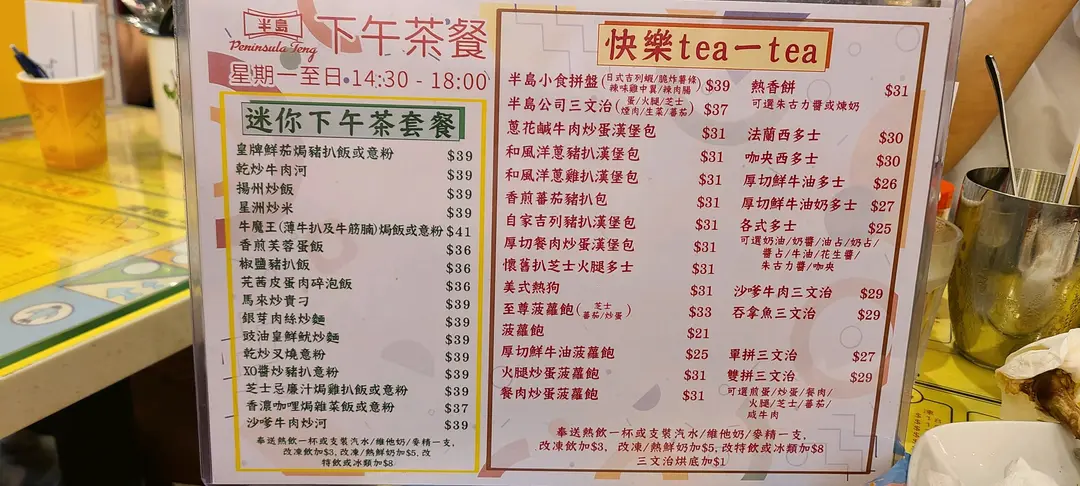 半島
Peninsula Teng
下午茶餐
星期一至日 14:30 - 18:00
迷你下午茶套餐
皇牌鮮茄焗豬扒飯或意粉 $39
乾炒牛肉河 $39
揚州炒飯 $39
星洲炒米 $39
牛魔王(薄牛扒及牛筋腩)焗飯或意粉 $41
香煎芙蓉蛋飯 $36
椒鹽豬扒飯 $36
芫茜皮蛋肉碎泡飯 $36
馬來炒貴刁 $39
銀芽肉絲炒麵 $39
豉油皇鮮魷炒麵 $39
乾炒叉燒意粉 $39
XO醬炒豬扒意粉 $39
芝士忌廉汁焗雞扒飯或意粉 $39
香濃咖哩焗雜菜飯或意粉 $37
沙嗲牛肉炒河 $39
奉送熱飲一杯或支裝汽水/維他奶/麥精一支,
改凍飲加$3, 改凍/熱鮮奶加$5, 改
特飲或冰類加$8
快樂tea一tea
半島小食拼盤(日式吉列蝦/脆炸薯條/辣味雞中翼/辣肉腸) $39
半島公司三文治(蛋/火腿/芝士/煙肉/生菜/蕃茄) $37
蔥花鹹牛肉炒蛋漢堡包 $31
和風洋蔥豬扒漢堡包 $31
和風洋蔥雞扒漢堡包 $31
香煎蕃茄豬扒包 $31
自家吉列豬扒漢堡包 $31
厚切餐肉炒蛋漢堡包 $31
懷舊扒芝士火腿多士 $31
美式熱狗 $31
至尊菠蘿飽(芝士/蕃茄/炒蛋) $33
菠蘿飽 $21
厚切鮮牛油菠蘿飽 $25
火腿炒蛋菠蘿飽 $31
餐肉炒蛋菠蘿飽 $31
熱香餅 $31
可選朱古力醬或煉奶
法蘭西多士 $30
咖央西多士 $30
厚切鮮牛油多士 $26
厚切鮮牛油奶多士 $27
各式多士 $25
可選奶油/奶醬/油占/奶占/
醬占/牛油/花生醬/
朱古力醬/咖央
沙嗲牛肉三文治 $29
吞拿魚三文治 $29
單拼三文治 $27
雙拼三文治 $29
可選煎蛋/炒蛋/餐肉/
火腿/芝士/蕃茄/
咸牛肉
奉送熱飲一杯或支裝汽水/維他奶/麥精一支,
改凍飲加$3, 改凍/熱鮮奶加$5, 改特飲或冰類加$8
三文治烘底加$1